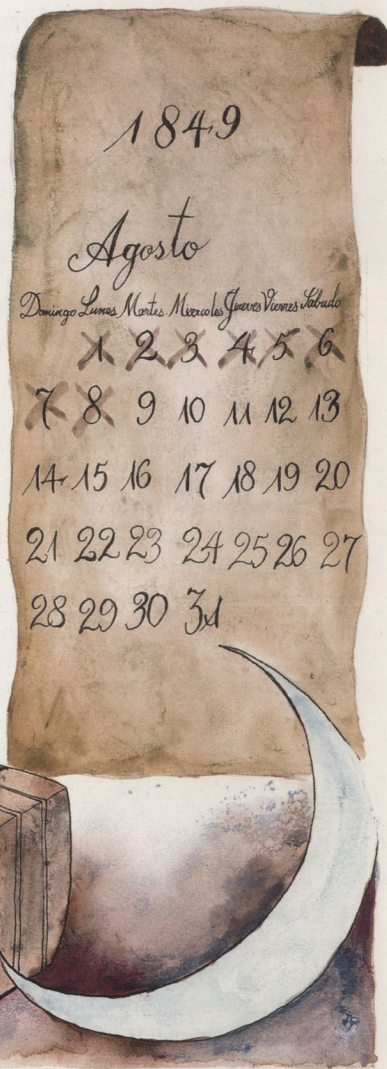 1849
Agosto
Domingo Lunes Martes Miercoles Jueves Viernes Sabado
1 2 3 4 5 6
7 8 9 10 11 12 13
14 15 16 17 18 19 20
21 22 23 24 25 26 27
28 29 30 31